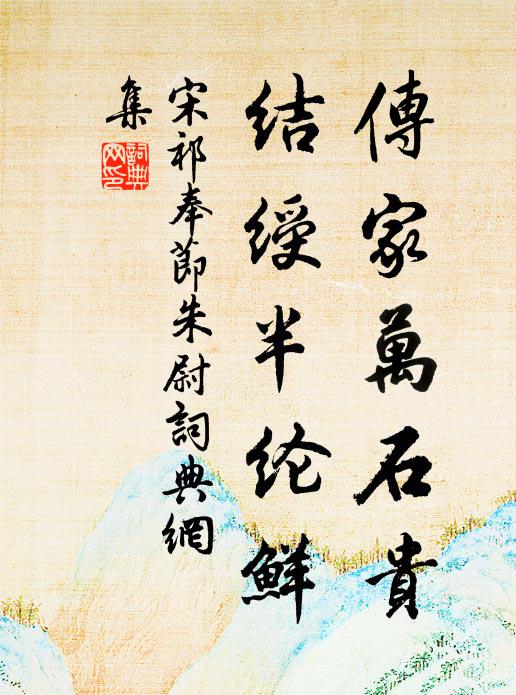 傳家萬石貴
結綬半纶鮮
宋祁奉節朱尉詞典網
集
詞典
网印